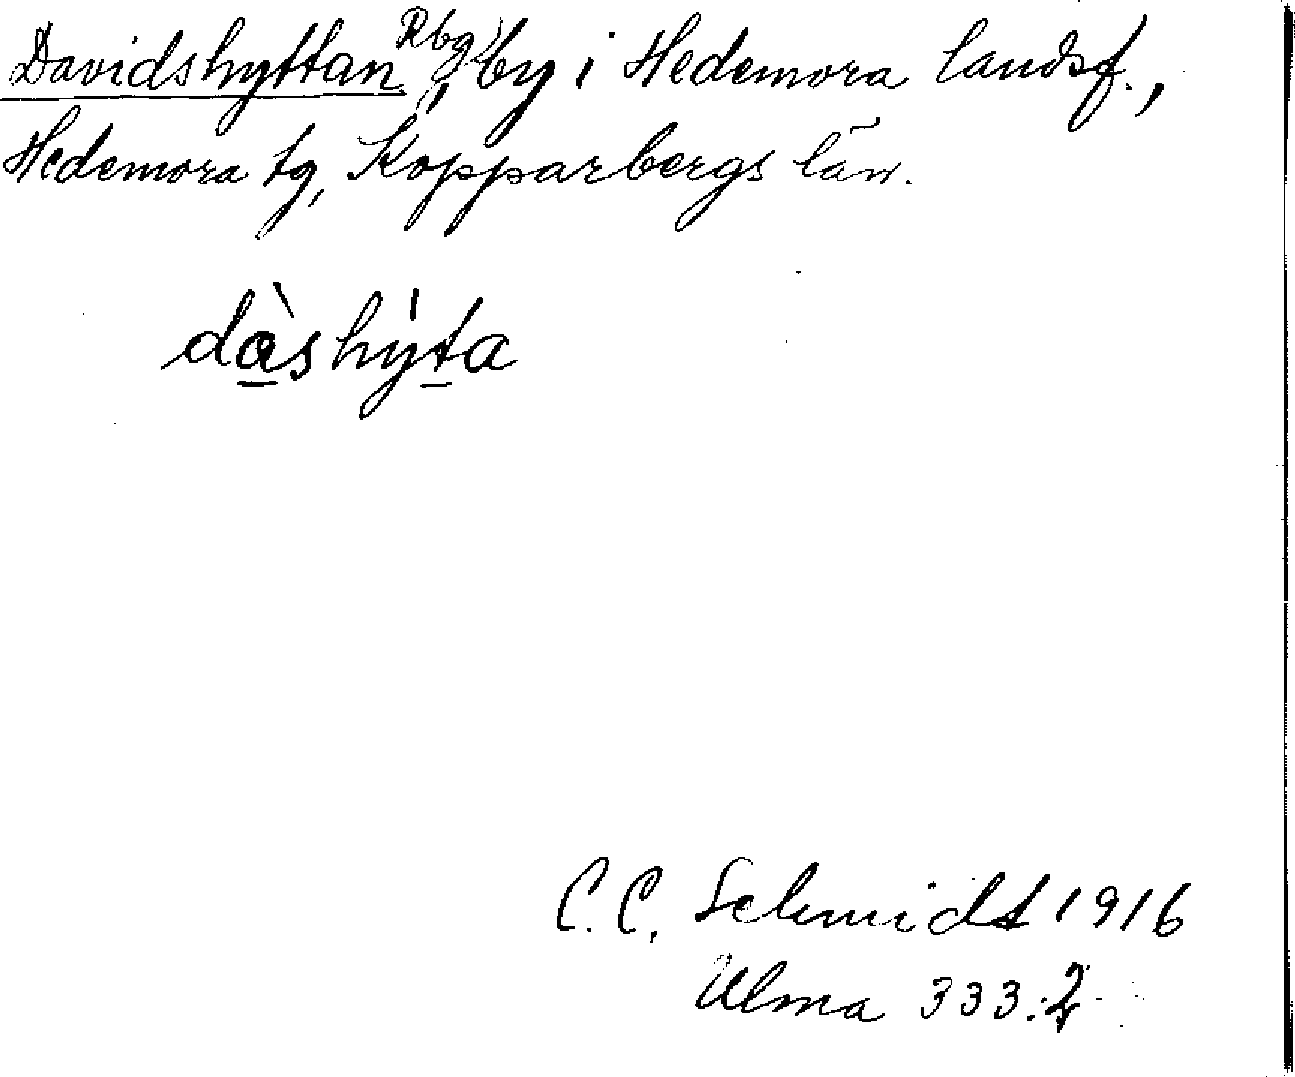 Davidshyttan Rbg, by i Hedemora landsf.,
Hedemora tg, Kopparbergs län.
dàshỳta
C. C. Schmidt 1916
Ulma 333:2